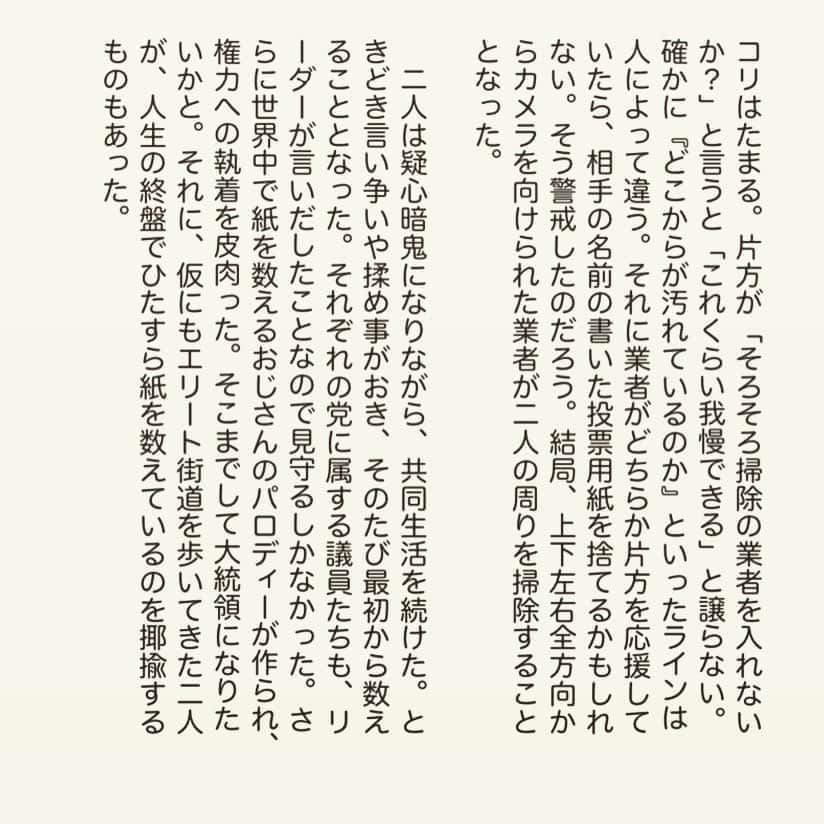 コリはたまる。片方が「そろそろ掃除の業者を入れない
か？」と言うと「これくらい我慢できる」と譲らない。
確かに『どこからが汚れているのか』といったラインは
人によって違う。それに業者がどちらか片方を応援して
いたら、相手の名前の書いた投票用紙を捨てるかもしれ
ない。そう警戒したのだろう。結局、上下左右全方向か
らカメラを向けられた業者が二人の周りを掃除すること
となった。
二人は疑心暗鬼になりながら、共同生活を続けた。と
きどき言い争いや揉め事がおき、そのたび最初から数え
ることとなった。それぞれの党に属する議員たちも、リ
ーダーが言いだしたことなので見守るしかなかった。さ
らに世界中で紙を数えるおじさんのパロディーが作られ、
権力への執着を皮肉った。そこまでして大統領になりた
いかと。それに、仮にもエリート街道を歩いてきた二人
が、人生の終盤でひたすら紙を数えているのを揶揄する
ものもあった。